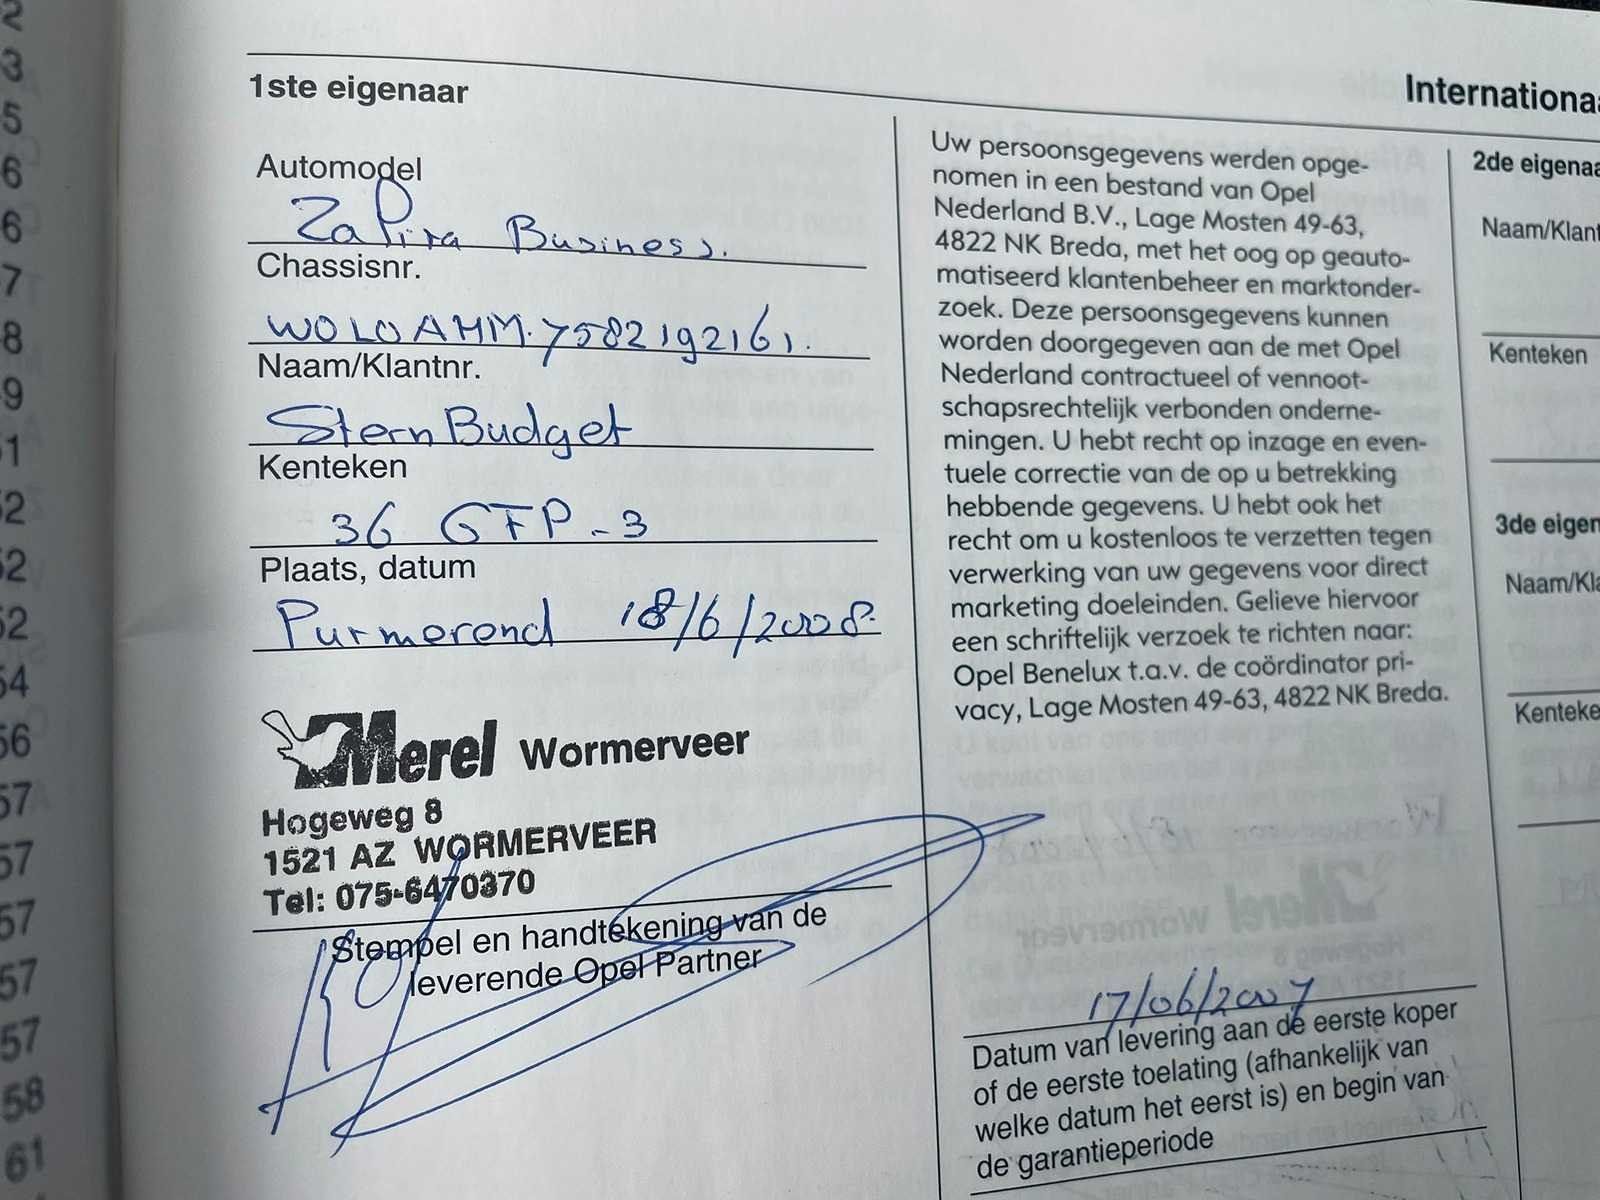 2
3
5
6
6
-7
-8
-9
51
52
52
52
54
56
57
57
57
57
57
58
61
Internationaa
1ste eigenaar
Automodel
Zafira Business.
Chassisnr.
WOLOAHM.7582192161.
Naam/Klantnr.
Stern Budget
Kenteken
36 GFP-3
Plaats, datum
Purmerend 18/6/2008.
Merel Wormerveer
Hogeweg 8
1521 AZ WORMERVEER
Tel: 075-6470370
Stempel en handtekening van de
leverende Opel Partner
Uw persoonsgegevens werden opge-
nomen in een bestand van Opel
Nederland B.V., Lage Mosten 49-63,
4822 NK Breda, met het oog op geauto-
matiseerd klantenbeheer en marktonder-
zoek. Deze persoonsgegevens kunnen
worden doorgegeven aan de met Opel
Nederland contractueel of vennoot-
schapsrechtelijk verbonden onderne-
mingen. U hebt recht op inzage en even-
tuele correctie van de op u betrekking
hebbende gegevens. U hebt ook het
recht om u kostenloos te verzetten tegen
verwerking van uw gegevens voor direct
marketing doeleinden. Gelieve hiervoor
een schriftelijk verzoek te richten naar:
Opel Benelux t.a.v. de coördinator pri-
vacy, Lage Mosten 49-63, 4822 NK Breda.
17/06/2007
Datum van levering aan de eerste koper
of de eerste toelating (afhankelijk van
welke datum het eerst is) en begin van
de garantieperiode
2de eigenaa
Naam/Klant
Kenteken
3de eigen
Naam/Kla
Kenteke